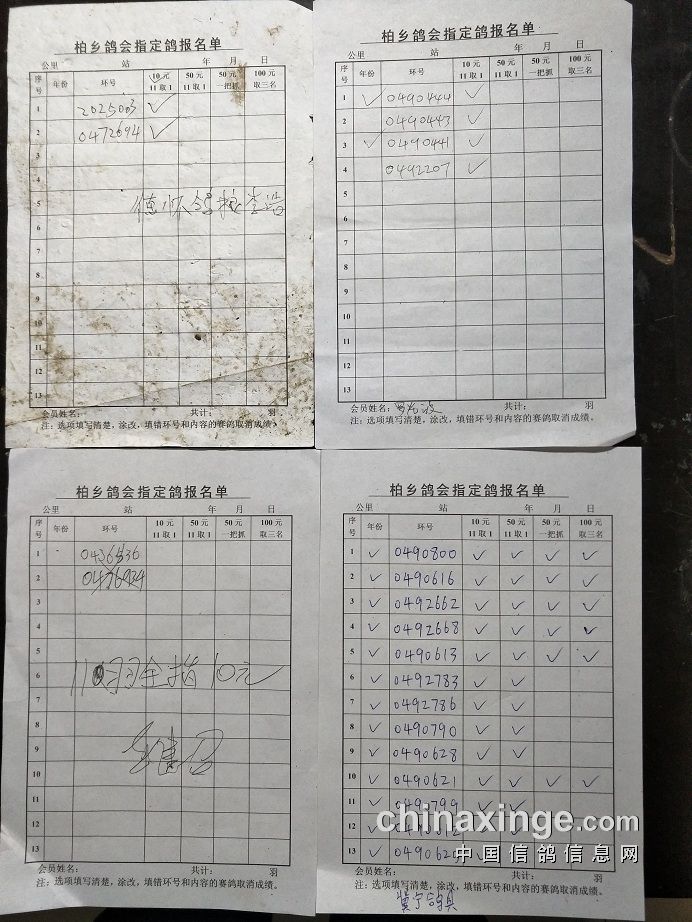 柏乡鸽会指定鸽报名单
公里 站 年 月 日
序号 年份 环号 10元11取1 50元11取1 50元一把抓 100元取三名
1 2025003 ✓
2 0472694 ✓
3
4
5
6
7
8
9
10
11
12
13
会员姓名: 共计: 羽
注: 选项填写清楚, 涂改, 填错环号和内容的赛鸽取消成绩。
柏乡鸽会指定鸽报名单
公里 站 年 月 日
序号 年份 环号 10元11取1 50元11取1 50元一把抓 100元取三名
1 ✓ 0490444 ✓
2 0490443 ✓
3 ✓ 0490441 ✓
4 0492207 ✓
5
6
7
8
9
10
11
12
13
会员姓名: 共计:
注: 选项填写清楚, 涂改, 填错环号和内容的赛鸽取消成绩。
柏乡鸽会指定鸽报名单
公里 站 年 月 日
序号 年份 环号 10元11取1 50元11取1 50元一把抓 100元取三名
1
2
3
4
5
6 羽全指10元
7
8
9
10
11
12
13
会员姓名: 共计: 羽
注: 选项填写清楚, 涂改, 填错环号和内容的赛鸽取消成绩。
柏乡鸽会指定鸽报名单
公里 站 年 月 日
序号 年份 环号 10元11取1 50元11取1 50元一把抓 100元取三名
1 ✓ 0490800 ✓ ✓ ✓ ✓
2 ✓ 0490616 ✓ ✓ ✓ ✓
3 ✓ 0492662 ✓ ✓ ✓ ✓
4 ✓ 0492668 ✓ ✓ ✓ ✓
5 ✓ 0490613 ✓ ✓ ✓ ✓
6 ✓ 0492783 ✓ ✓
7 ✓ 0492786 ✓ ✓
8 ✓ 0490790 ✓ ✓
9 ✓ 0490628 ✓ ✓
10 ✓ 0490621 ✓ ✓ ✓ ✓
11 ✓ 0490799 ✓ ✓
12 ✓
13 ✓ 0490620
会员姓名: 共计: 羽
注: 选项填写清楚, 涂改, 填错环号和内容的赛鸽取消成绩。
冀宁
chinaxinge.com
中国信鸽信息网